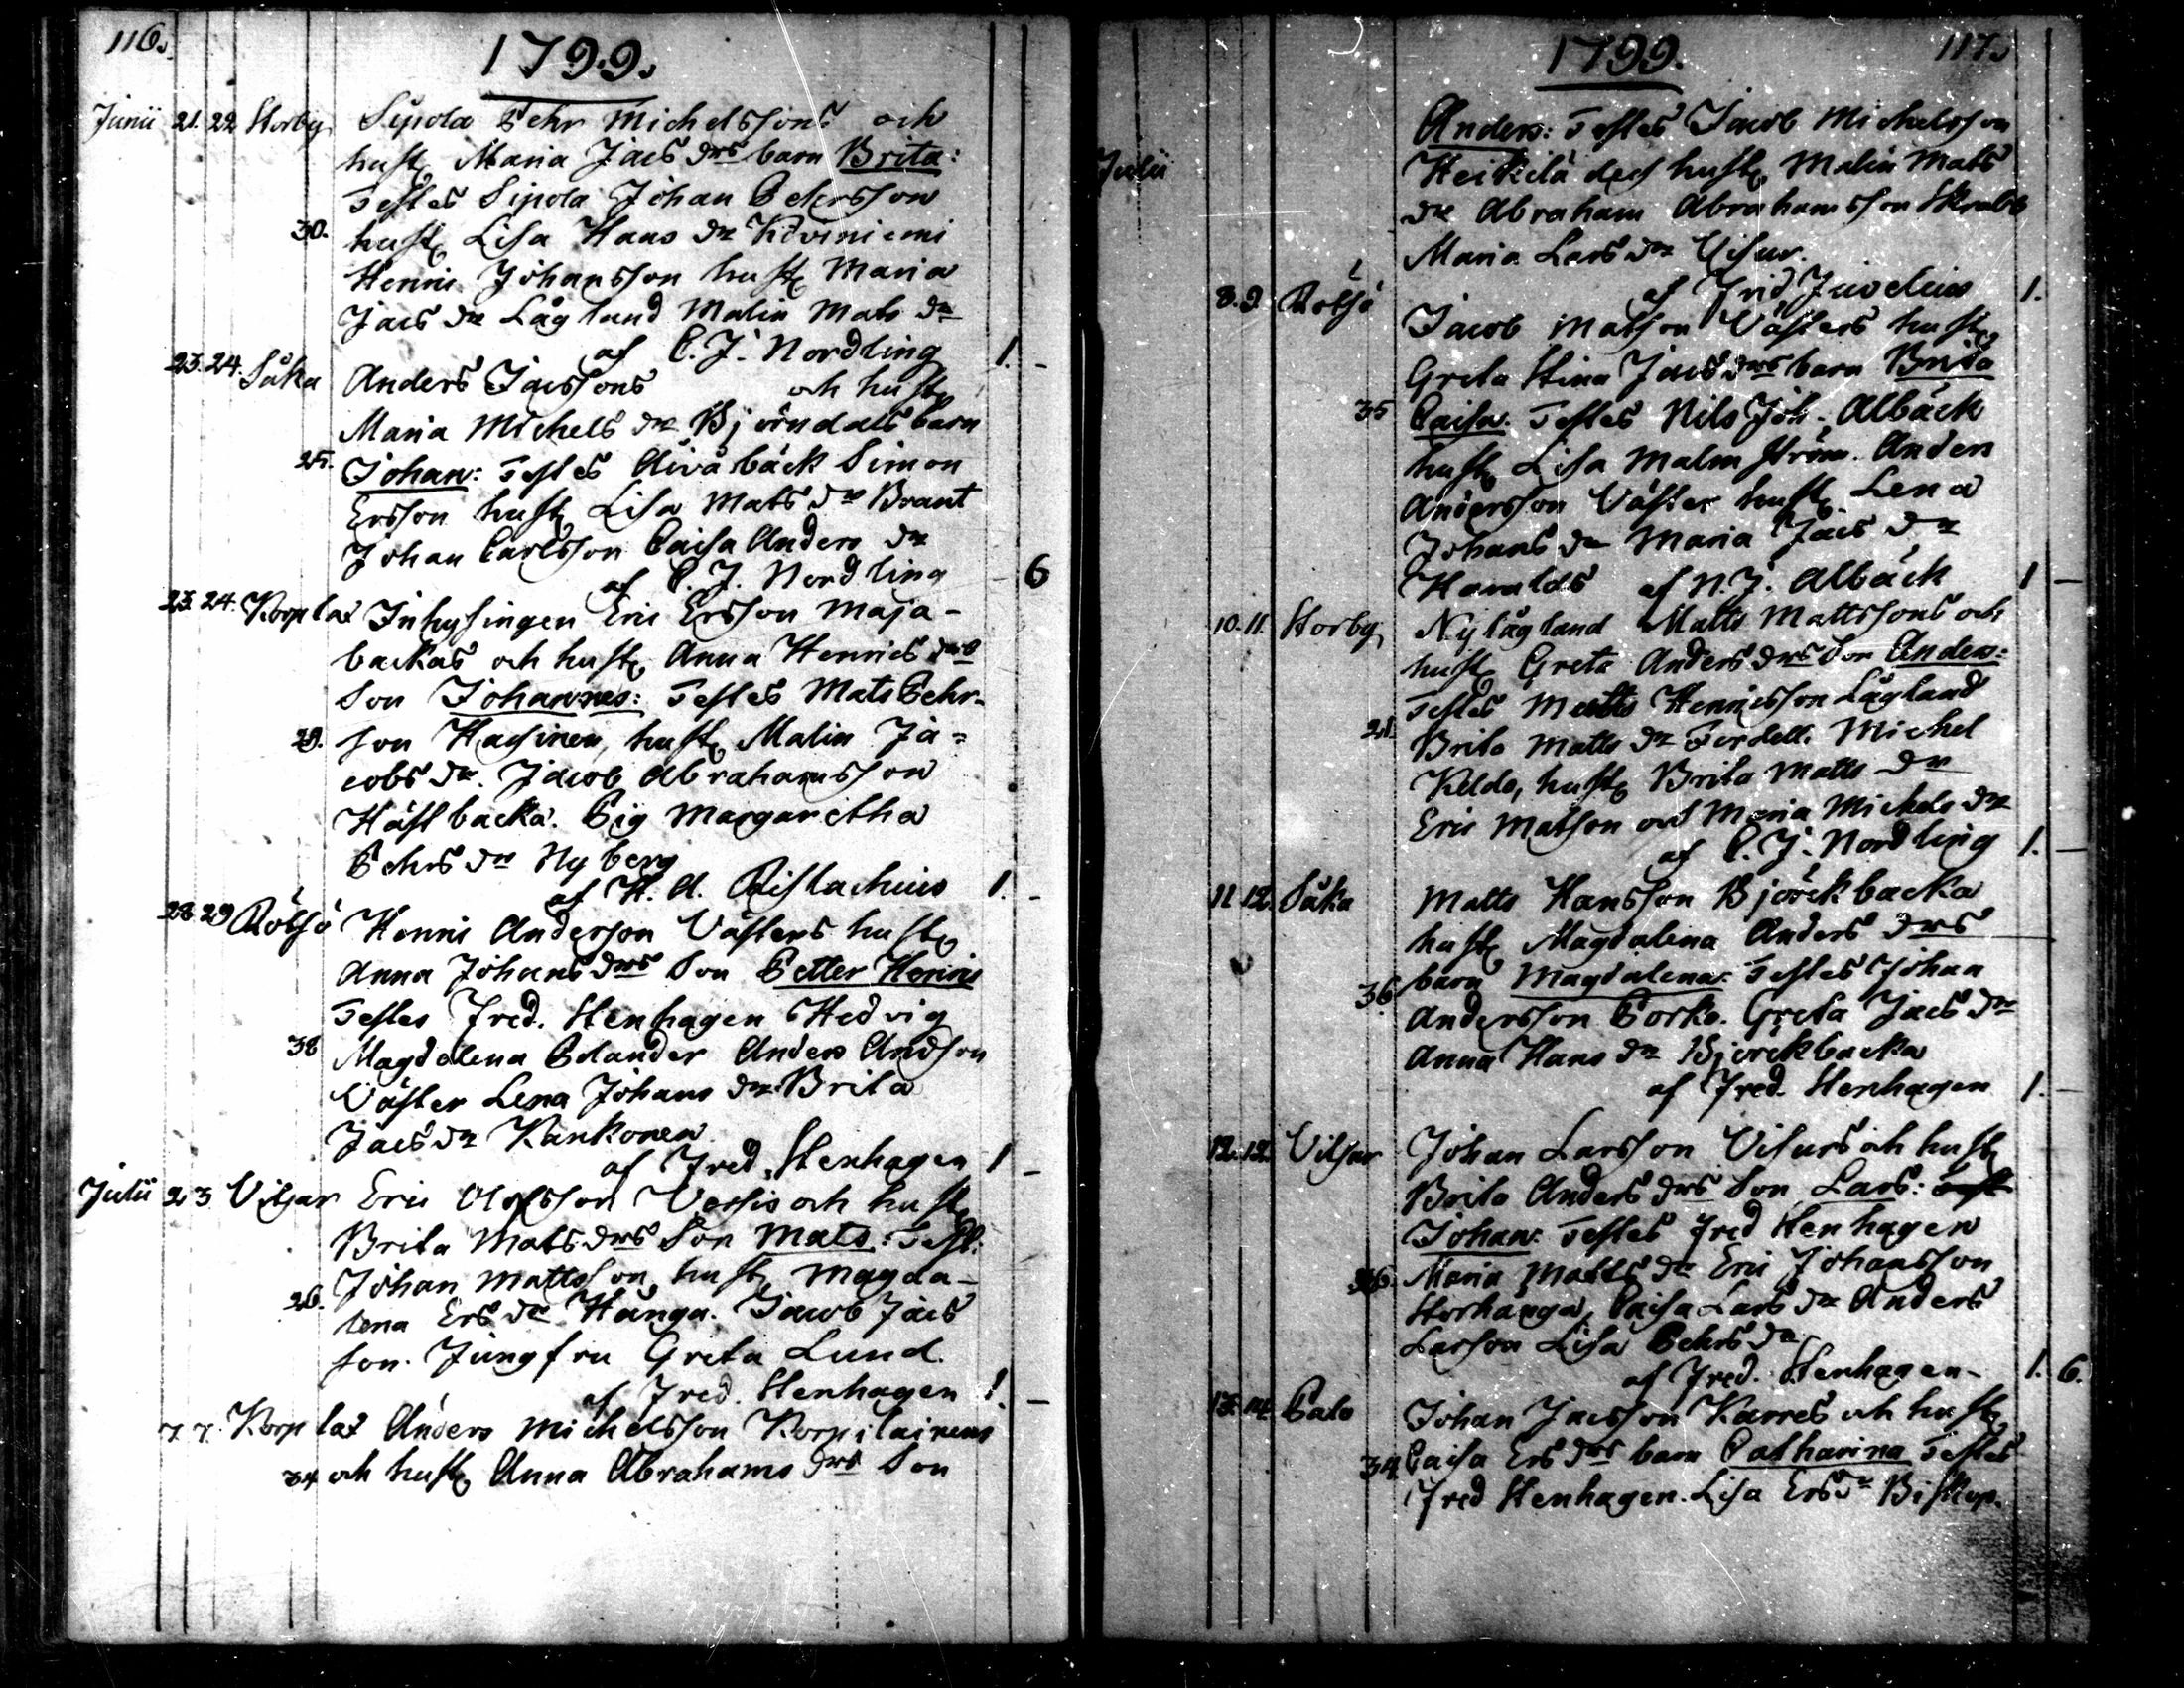 116.
1799.
Junii 21. 22 Storby Sipola Pehr Michelssons och
hust. Maria Jacs drs barn Brita:
Testes Sipola Johan Pehrsson
30. hust. Lisa Hans dr Koviniemi
Henric Johansson hust. Maria
Jacs dr Lågland Malin Mats dr
af C. J. Nordling 1. -
23. 24. Såka Anders Jacssons och hust.
Maria Michels dr Björndals barn
25. Johan: Testes Simon
Ersson hust. Lisa Mats dr Brant
Johan Carlsson Caisa Anders dr
af C. J. Nordling - 6
23. 24. Korplax Inhysingen Eric Ersson Maja-
backas och hust. Anna Henrics drs
Son Johannes: Testes Mats Pehr-
29. son Hasinen, hust. Malin Ja=
cobs dr. Jacob Abrahamsson
Hästbacka. Pig Margaretha
Pehrs dr Nyberg
af H. A. Ristachius 1. -
28. 29 Rötsö Henric Anderson Västers hust.
Anna Johans drs Son Petter Henric
Testes Fred. Stenhagen Hedvig
38 Magdalena Polander Anders Andson
Väster Lena Johans dr Brita
Jacs dr Kankonen
af Fred. Stenhagen 1 -
Julii 2. 3 Vitsar Eric Olofsson Vessis och hust.
Brita Mats drs Son Mats: Test:
Johan Mattsson, hust. Magda-
26. lena Ers dr Hånga. Jacob Jacs
son. Jungfru Greta Lund.
af Fred. Stenhagen 1. -
7. 7. Korplax Anders Michelsson Korpilainens
34 och hust. Anna Abrahams drs Son
1799.
117.
Anders: Testes Jacob Michelsson
Julii Heikilä des hust. Malin Mats
dr Abraham Abrahamsson Skrabb
Maria Lars dr Visur.
af Frid Juvelius 1.
8. 9. Rötsö Jacob Matson Västers hust.
Greta Stina Jacs drs barn Brita
35 Caisa: Testes Nils Joh. Albäck
hust. Lisa Malmström. Anders
Andersson Väster hust. Lena
Johans dr Maria Jacs dr
Haralds af N. J. Albäck 1 -
10. 11. Storby Nylågland Matts Mattssons och
hust. Greta Anders drs Son Anders:
Testes Matts Henricsson Lågland
21. Brita Matts dr Fordell. Michel
Keldo, hust. Brita Matts dr
Eric Matson och Maria Michels dr
af C. J. Nordling 1. -
11. 12. Såka Matts Hansson Björckbacka
hust. Magdalena Anders drs
barn Magdalena: Testes Johan
36. Andersson Porko. Greta Jacs dr
Anna Hans dr Björckbacka
af Fred. Stenhagen 1. -
12. 12. Vitsar Johan Larsson Visurs och hust.
Brita Anders drs Son Lars:
Johan: Testes Fred Stenhagen
26. Maria Matts dr Eric Johansson
Storhånga, Caisa Lars dr Anders
Larsson Lisa Pehrs dr
af Fred. Stenhagen- 1. 6.
13. 14. Palo Johan Jacsson Karres och hust.
34 Caisa Ers drs barn Catharina Testes
Fred Stenhagen. Lisa Ers dr Biskop.